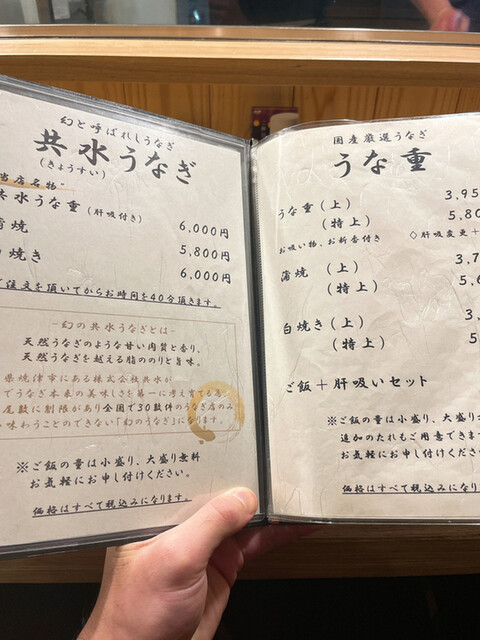 幻と呼ばれしうなぎ
共水うなぎ
(きょうすい)
当店名物
共水うな重(肝吸付き) 6,000円
蒲焼 5,800円
焼き 6,000円
注文を頂いてからお時間を40分頂きます。
-幻の共水うなぎとは-
天然うなぎのような甘い肉質と香り、
天然うなぎを越える脂ののりと旨味。
県焼津市にある株式会社共水が
でうなぎ本来の美味しさを第一に考え育てる為、
尾数に制限があり全国で30数件のうなぎ店のみ
味わうことのできない「幻のうなぎ」になります。
※ご飯の量は小盛り、大盛り無料
お気軽にお申し付けください。
価格はすべて税込みになります。
国産厳選うなぎ
うな重
うな重(上) 3,95
(特上) 5,80
お吸い物、お新香付き ◇肝吸変更+
蒲焼(上) 3,7
(特上) 5,6
白焼き(上) 3,
(特上) 5,
ご飯+肝吸いセット
※ご飯の量は小盛り、大盛り
追加のたれもご用意できます
お気軽にお申し付けくださ
価格はすべて税込みになり